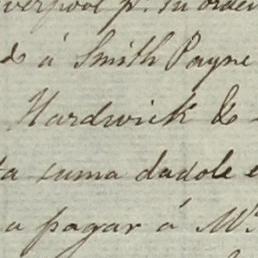 verpool pr. su orden
& á Smith Payne
Hardwick &
ta suma dadole e
a pagar á Mr.